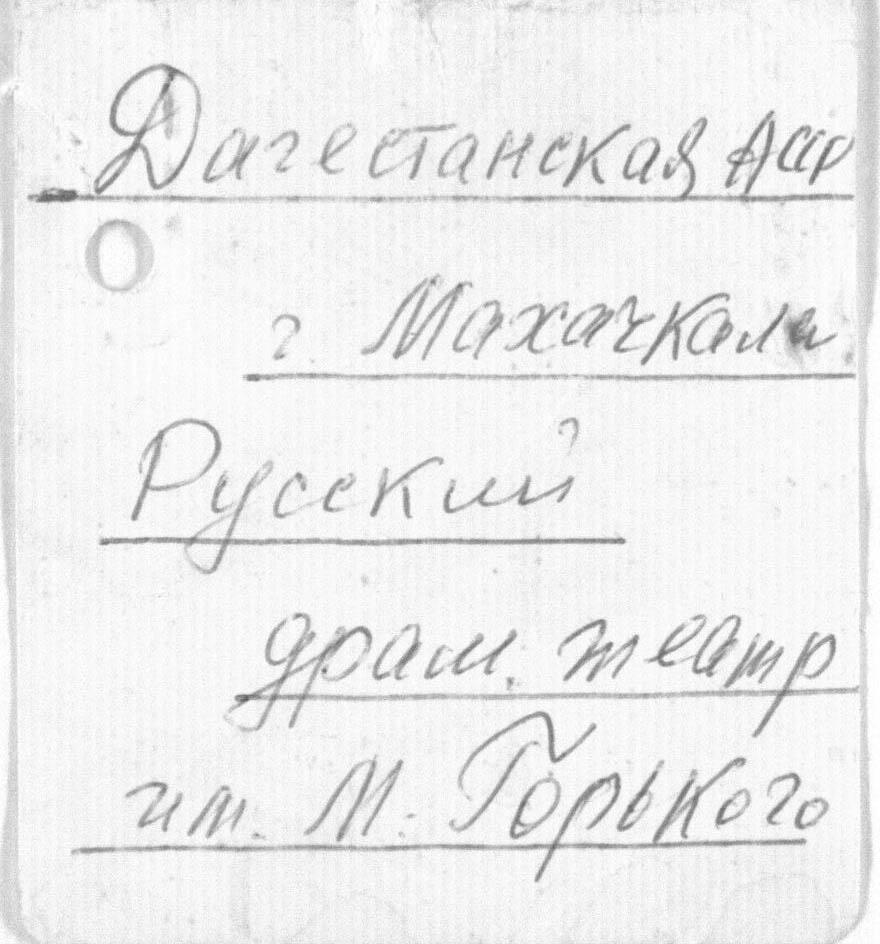 Дагестанская АССР
г. Махачкала
Русский
драм. театр
им. М. Горького